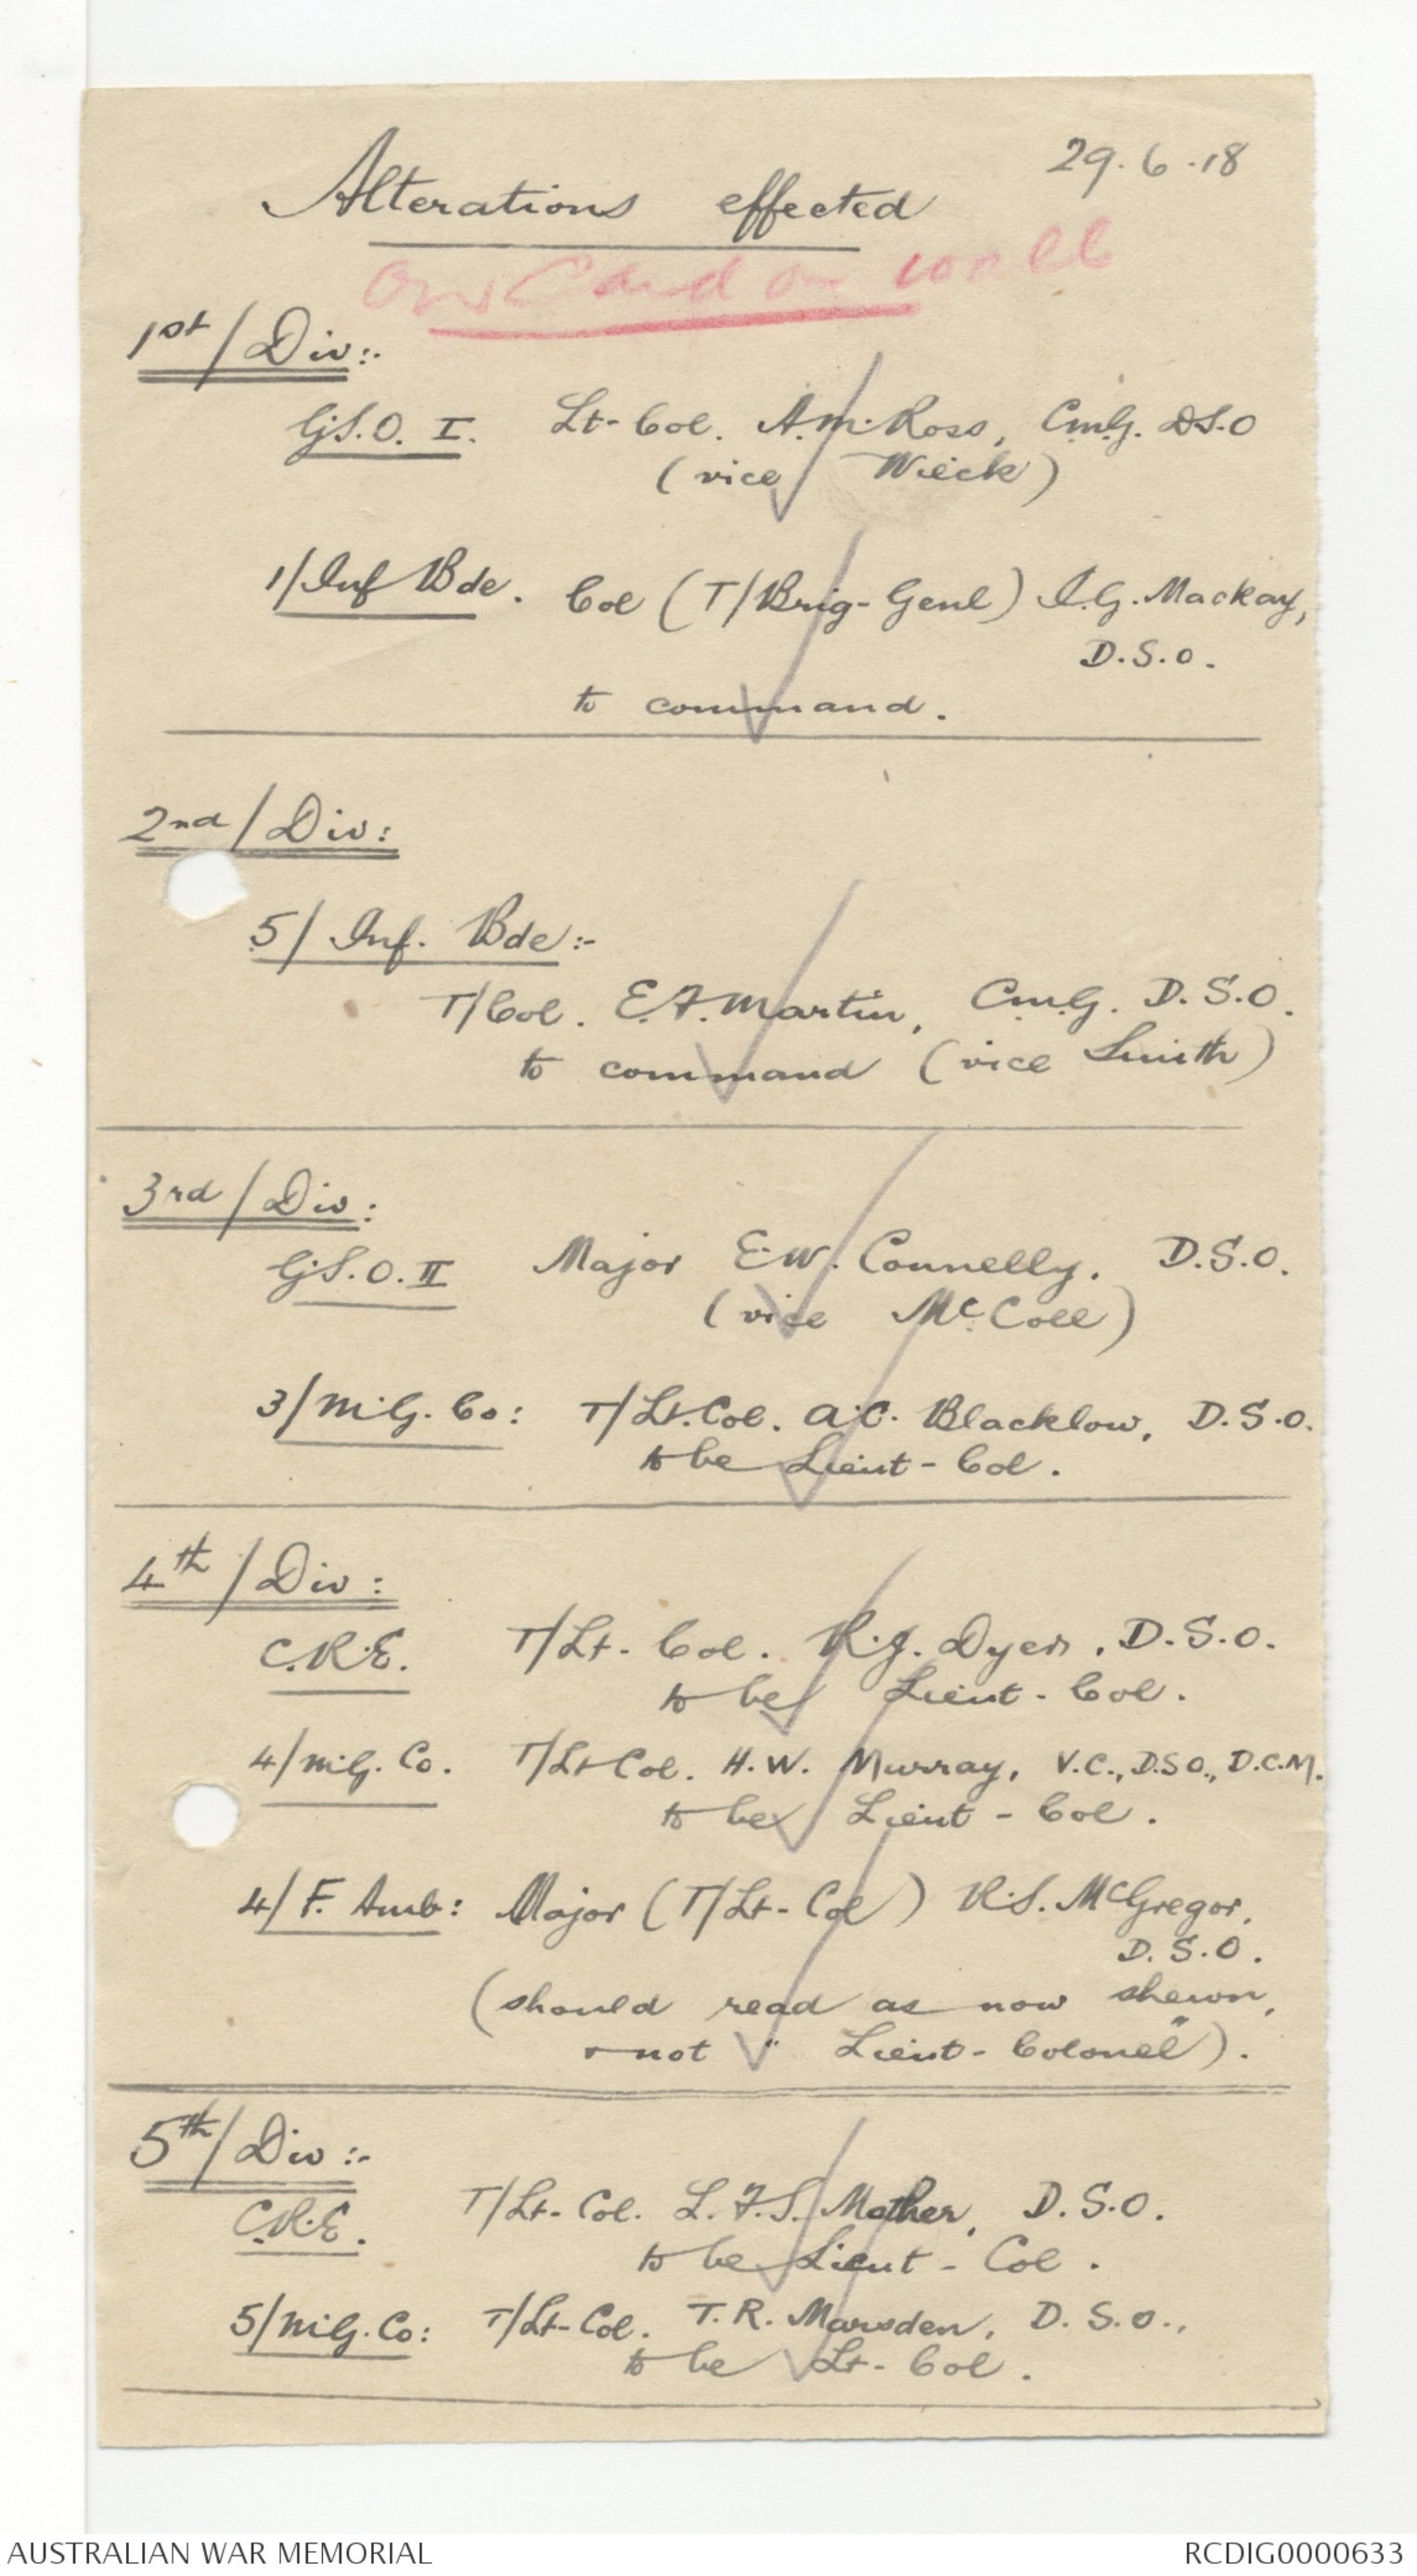 29.6.18
Alterations effected
on Card on wall
1st/Div:-
G.S.O. I. Lt-Col. A.M. Ross, C.M.G. D.S.O
(vice Wieck)
1/Inf Bde. Col (T/Brig-Genl) I.G. Mackay,
D.S.O.
to command.
2nd/Div:
5/Inf. Bde:-
T/Col. E.F. Martin, C.M.G. D.S.O.
to command (vice Smith)
3rd/Div:
G.S.O. II Major E.W. Connelly. D.S.O.
(vice McColl)
3/M.G. Co: T/Lt.Col. A.C. Blacklow, D.S.O.
to be Lieut-Col.
4th/Div:
C.R.E. T/Lt-Col. R.J. Dyer, D.S.O.
to be Lieut-Col.
4/M.G. Co. T/Lt Col. H.W. Murray, V.C., D.S.O., D.C.M.
to be Lieut-Col.
4/F. Amb: Major (T/Lt-Col) R.S. McGregor,
D.S.O.
(should read as now shewn,
& not "Lieut-Colonel").
5th/Div:-
C.R.E. T/Lt-Col. L.F.S. Mather, D.S.O.
to be Lieut-Col.
5/M.G. Co: T/Lt-Col. T.R. Marsden, D.S.O.,
to be Lt-Col.
AUSTRALIAN WAR MEMORIAL RCDIG0000633